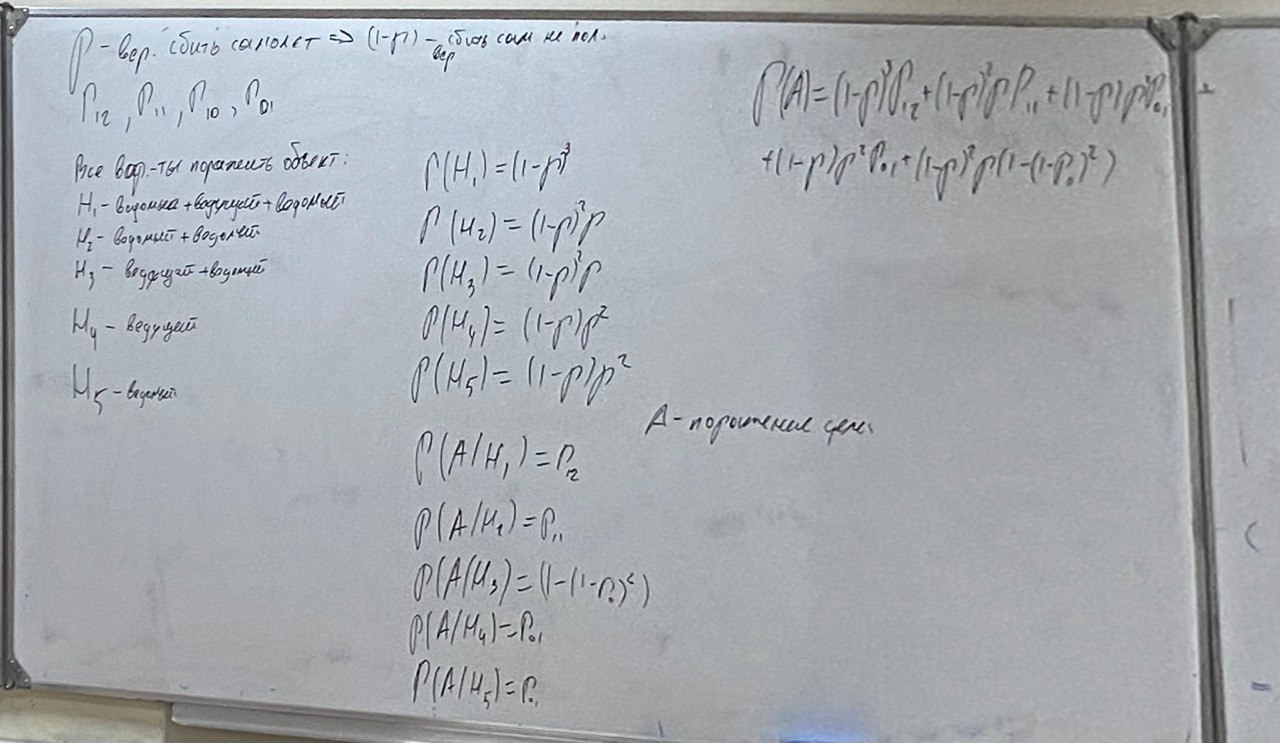 P – вер. сбить самолет => (1-p) – вер сбить сам не пол.
P₁₂, P₁₁, P₁₀, P₀₁
Все вар.-ты поразить объект:
H₁ – + ведущий + ведомый
H₂ – ведомый + ведомый
H₃ – ведущий + ведомый
H₄ – ведущий
H₅ – ведомый
P(H₁) = (1-p)³
P(H₂) = (1-p)²p
P(H₃) = (1-p)²p
P(H₄) = (1-p)p²
P(H₅) = (1-p)p²
A – поражение цели
P(A/H₁) = P₁₂
P(A/H₂) = P₁₁
P(A/H₃) = (1-(1-P₀₁)²)
P(A/H₄) = P₀₁
P(A/H₅) = P₀₁
P(A) = (1-p)³P₁₂ + (1-p)²p P₁₁ + (1-p)p²P₀₁ +
+ (1-p)p²P₀₁ + (1-p)²p(1-(1-P₀₁)²)